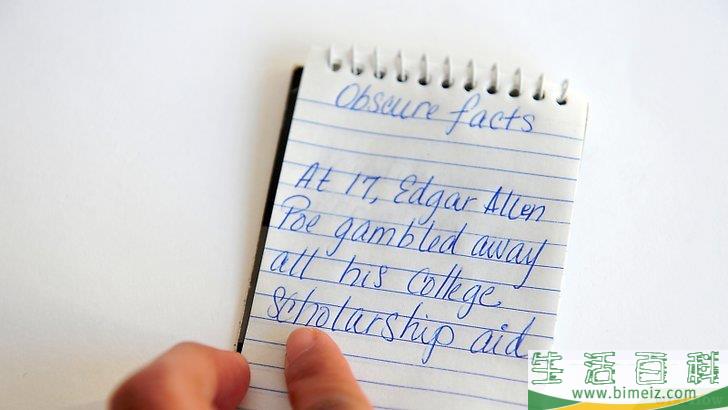 Obscure facts
At 17, Edgar Allen
Poe gambled away
all his college
scholarship aid
生活百科
www.bimeiz.com